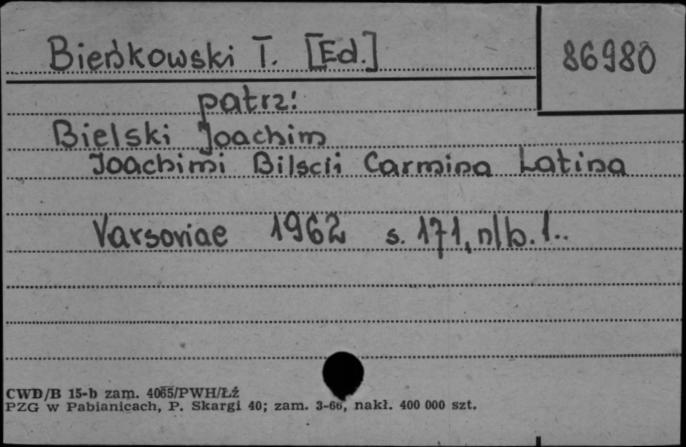 Bieńkowski T. [Ed.]
86980
patrz:
Bielski Joachim
Joachimi Bilscii Carmina Latina
Varsoviae 1962 s. 171, nlb. 1..
CWD/B 15-b zam. 4065/PWH/Łź
PZG w Pabianicach, P. Skargi 40; zam. 3-66, nakł. 400 000 szt.